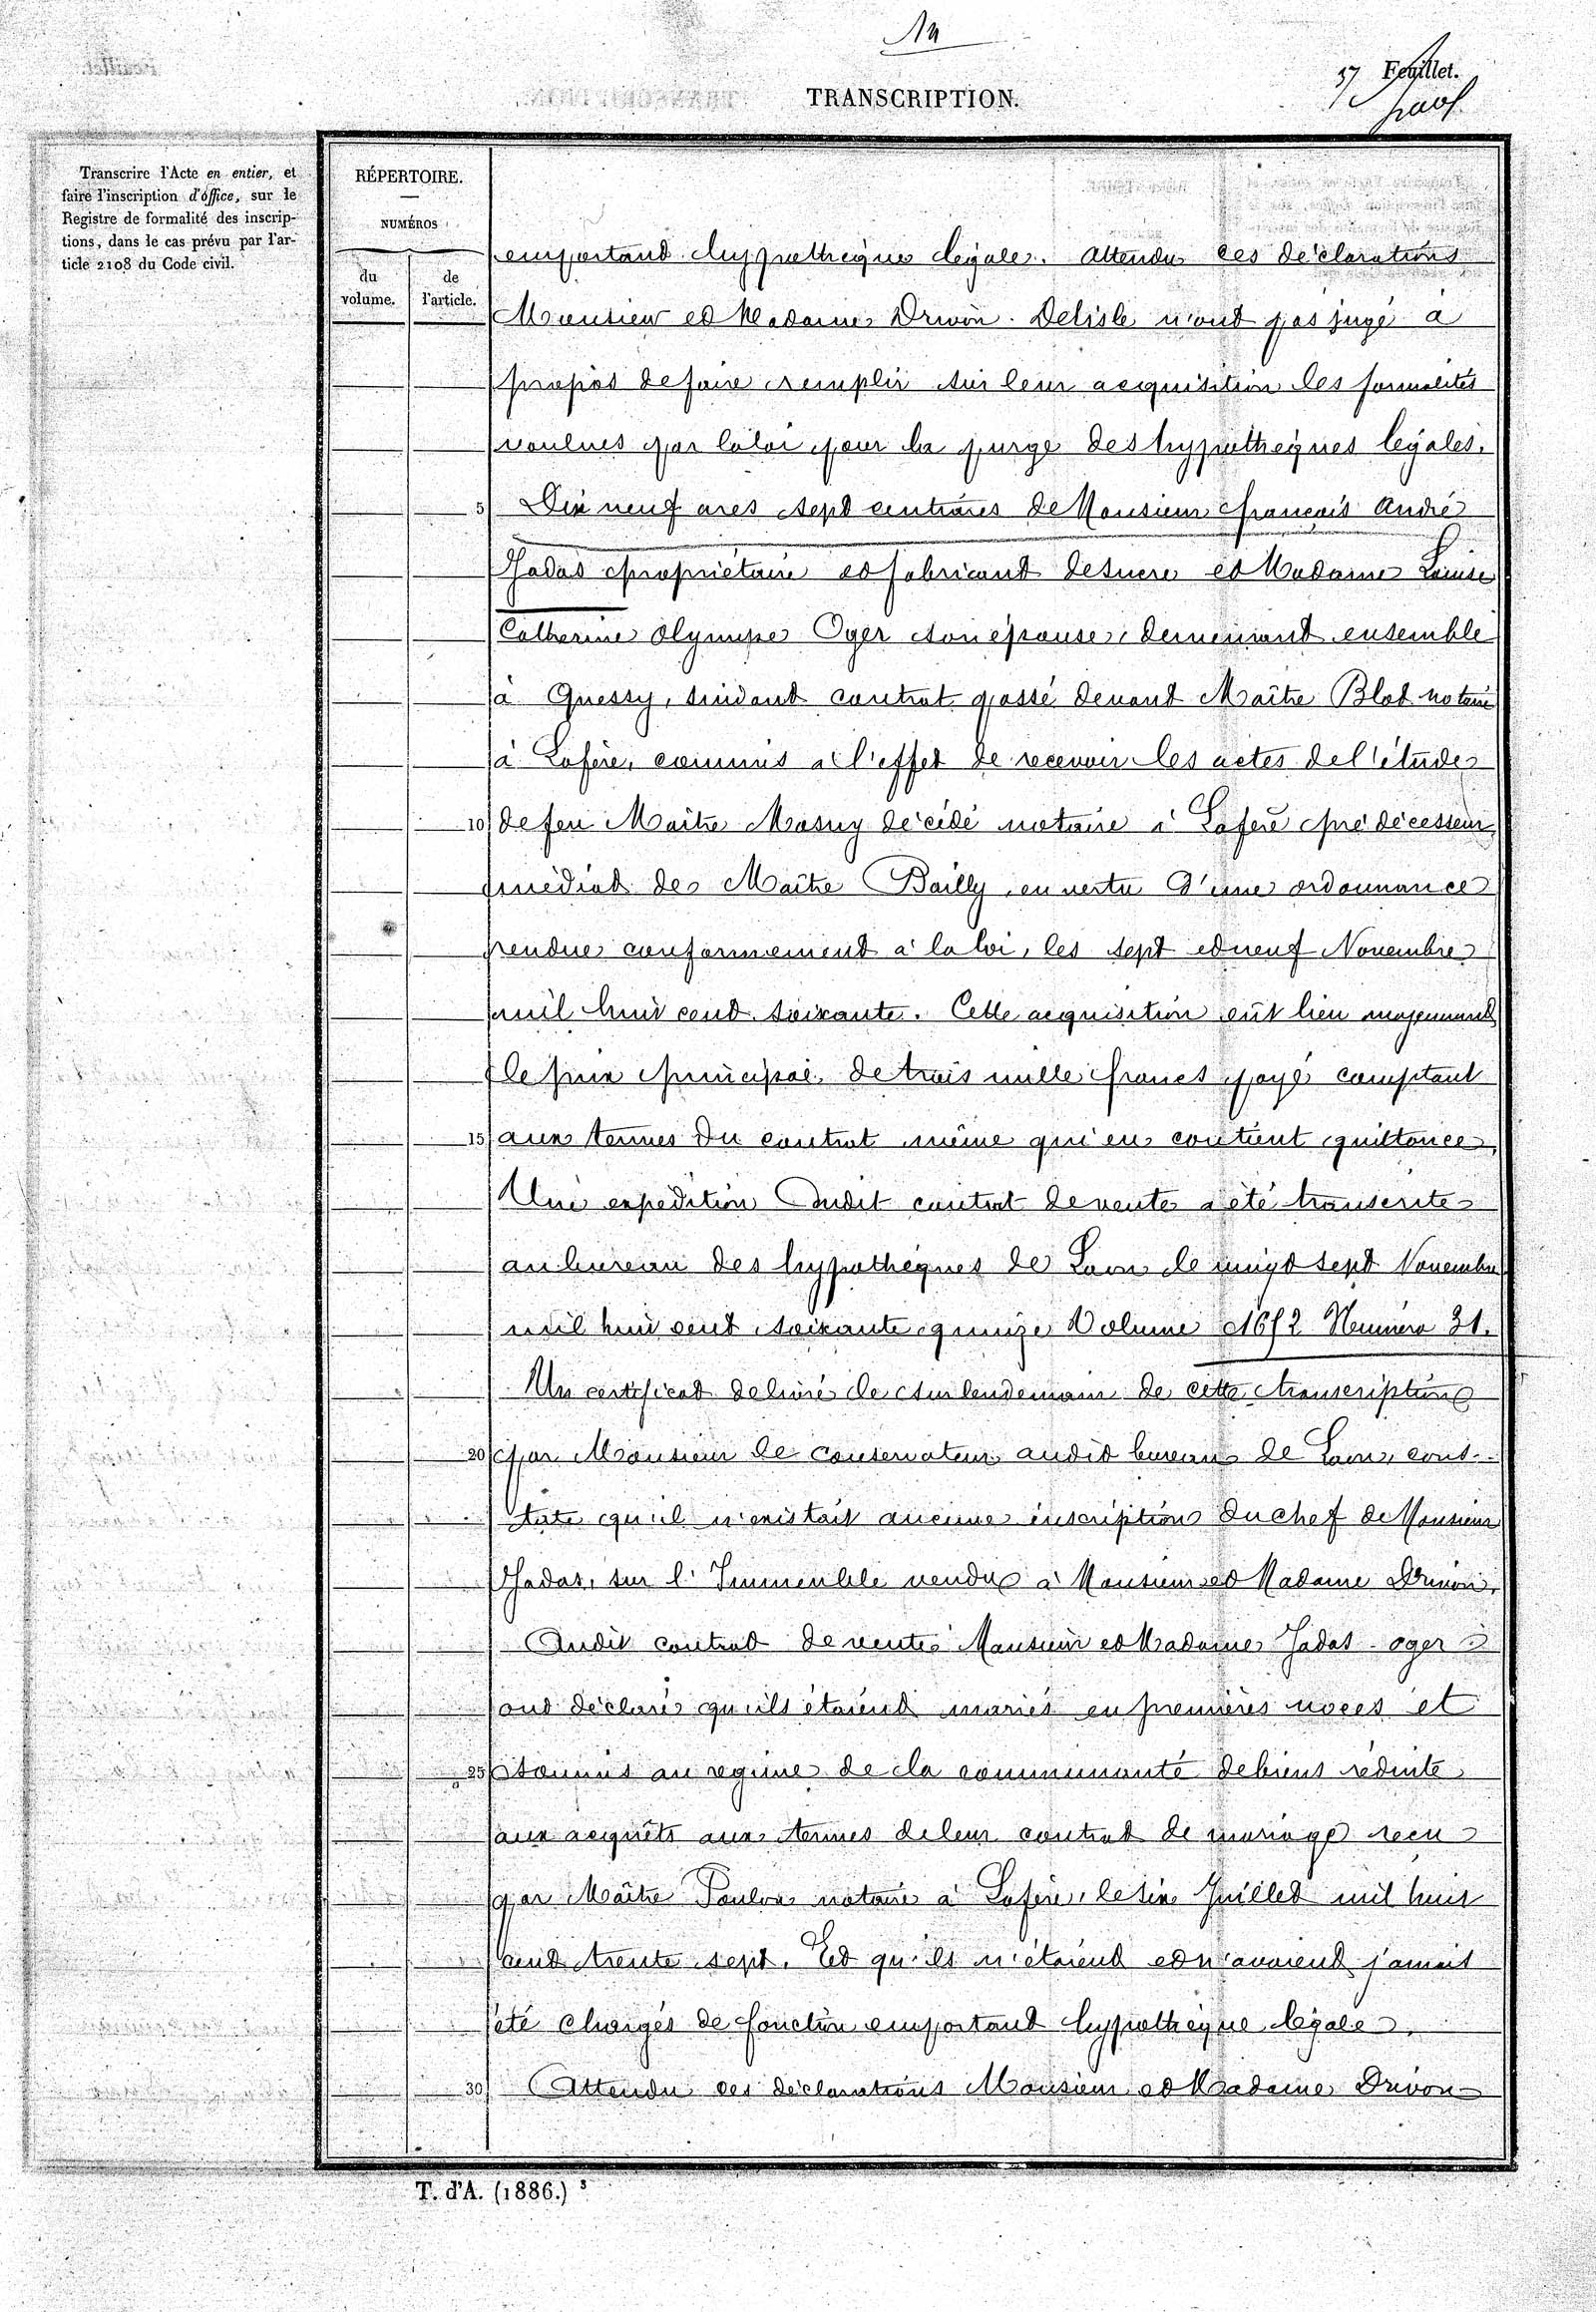 37 Feuillet.
TRANSCRIPTION.
Transcrire l'Acte en entier, et
faire l'inscription d'office, sur le
Registre de formalité des inscrip-
tions, dans le cas prévu par l'ar-
ticle 2108 du Code civil.
RÉPERTOIRE.
NUMÉROS
du
volume.
de
l'article.
emportant hypothèque légale. Attendu ces déclarations
Monsieur et Madame Drivon. Delisle n'ont pas jugé à
propos de faire remplir sur leur acquisition les formalités
voulues par la loi pour la purge des hypothèques légales.
5 Dix neuf ares sept centiares de Monsieur François André
Jadas propriétaire et fabricant de sucre et Madame Louise
Catherine Olympe Oger son épouse, demeurant ensemble
à Quessy, suivant contrat passé devant Maître Blot notaire
à Lafère, commis à l'effet de recevoir les actes de l'étude
10 de feu Maître Masuy décédé notaire à Lafère prédécesseur
médiat de Maître Bailly, en vertu d'une ordonnance
rendue conformément à la loi, les sept et neuf Novembre
mil huit cent soixante. Cette acquisition eût lieu moyennant
le prix principal de trois mille francs payé comptant
15 aux termes du contrat même qui en contient quittance.
Une expédition dudit contrat de vente a été transcrite
au bureau des hypothèques de Laon le vingt sept Novembre
mil huit cent soixante quinze Volume 1652 Numéro 31.
Un certificat délivré le surlendemain de cette transcription
20 par Monsieur le conservateur audit bureau de Laon, cons-
tate qu'il n'existait aucune inscription du chef de Monsieur
Jadas, sur l'Immeuble vendu à Monsieur et Madame Drivon.
Audit contrat de vente Monsieur et Madame Jadas-oger
ont déclaré qu'ils étaient mariés en premières noces et
25 soumis au régime de la communauté de biens réduite
aux acquêts aux termes de leur contrat de mariage reçu
par Maître Poulon notaire à Lafère, le six Juillet mil huit
cent trente sept. Et qu'ils n'étaient et n'avaient jamais
été chargés de fonction emportant hypothèque légale.
30 Attendu ces déclarations Monsieur et Madame Drivon
T. d'A. (1886.) 3